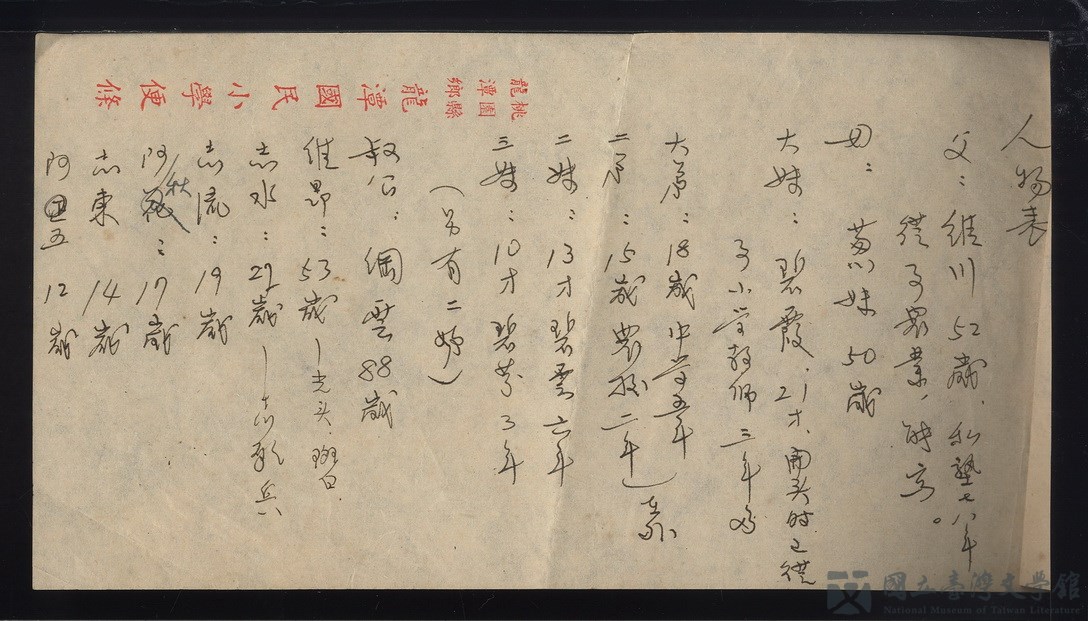 人物表
父：維川 52歲，私塾七八年
從事農業，
母： 妹 50歲
大妹：碧霞，21才，開头時已從
事小学教師三年多
大弟：18歲中学五年
二弟：15歲農校二年
二妹：13才碧雲六年
三妹：10才碧芬3年
（另有二姊）
叔公：綱雲 88歲
維昂：53歲—光头，斑白
志水：27歲—志願兵
志流：19歲
阿秋：17歲
志東 14歲
阿五 12歲
桃園縣
龍潭鄉
龍潭國民小學便條
國立臺灣文學館
National Museum of Taiwan Literature